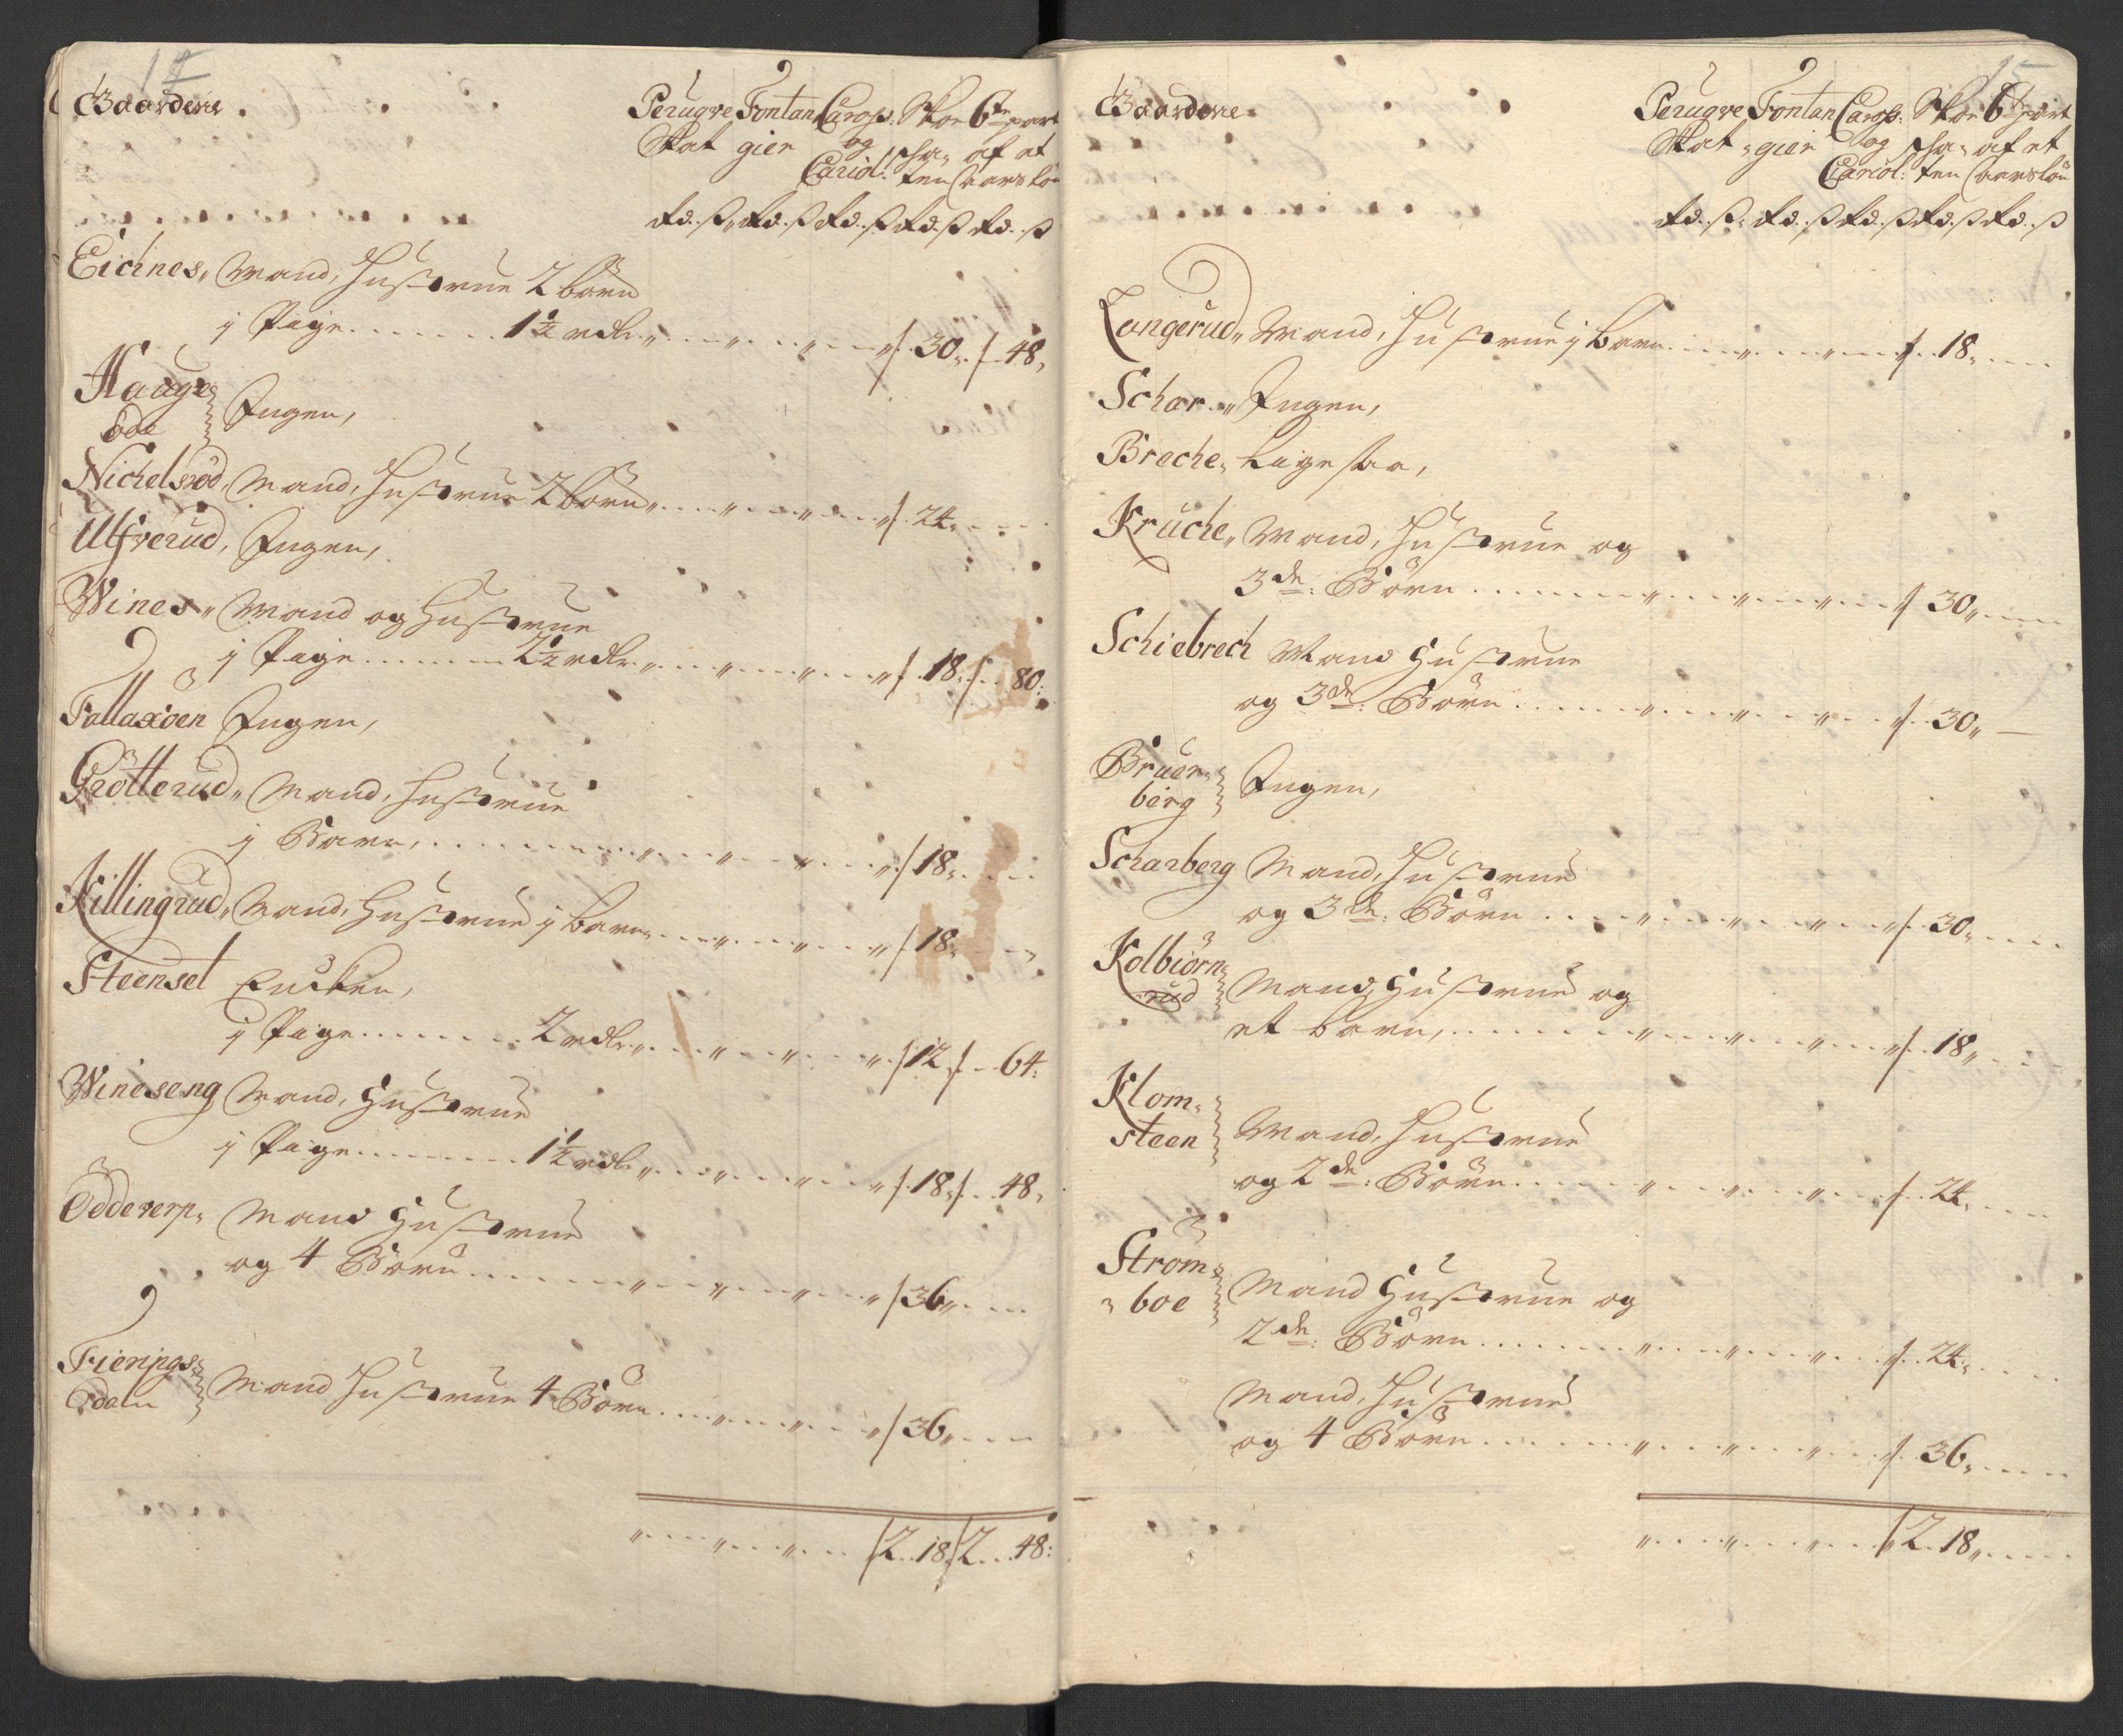 14
Gaardene.
Perugve Fontan Caroß: Skoe 6te part
Skat gier og scha= af et
Cariol: ten aarsløn
rd. ß. rd. ß rd. ß rd. ß rd. ß
Eichnes, Mand, Hustrue 2 børn
j Pige ...... 1½ rdlr. 30. 48.
Hauge
Øde Ingen,
Nichelsrød, Mand, Hustrue 2 børn 24.
Ulfverud, Ingen,
Wines, Mand og Hustrue
j Pige ...... 2½ rdlr. 18. 80.
Fallaxöen Ingen,
Grötterud, Mand, Hustrue
j Barn, 18.
Killingrud, Mand, Hustrue j barn 18.
Steenset Encken,
j Pige ...... 2 rdlr. 12. 64.
Wineseng Mand, Hustrue
j Pige ...... 1½ rdlr. 18. 48.
Öddeverp, Mand Hustrue
og 4 Børn 36.
Fierings
daln Mand Hustrue 4 Børn 36.
12. 18. 2. 48.
15
Gaardene.
Perugve Fontan Caroß: Skoe 6te part
Skat gier og scha= af et
Cariol: ten aarsløn
rd. ß. rd. ß rd. ß rd. ß rd. ß
Langerud, Mand, Hustrue j barn 18.
Schar, Ingen,
Breche, Ligesaa,
Kruche, Mand, Hustrue og
3de: Børn 30.
Schiebrech Mand Hustrue
og 3de: Børn 30.
Bruer
berg Ingen,
Scharberg Mand, Hustrue
og 3de: Børn 30.
Kolbiörn
rud Mand, Hustrue og
et barn, 18.
Klom
steen Mand, Hustrue
og 2de: Børn 24.
Ström
boe Mand Hustrue og
2de: Børn 24.
Mand, Hustrue
og 4 Børn 36.
2. 18.